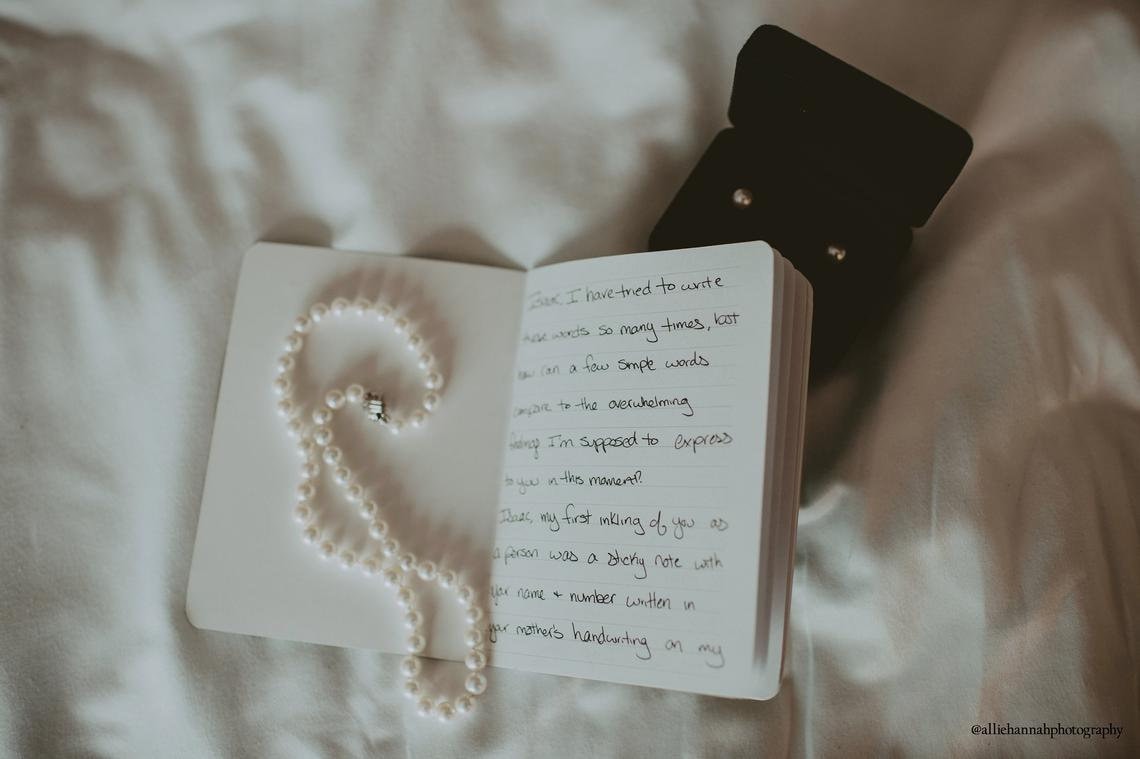 Isaac, I have tried to write
these words so many times, but
how can a few simple words
compare to the overwhelming
feelings I'm supposed to express
to you in this moment?
Isaac, my first inkling of you as
a person was a sticky note with
your name + number written in
your mother's handwriting on my
@alliehannahphotography